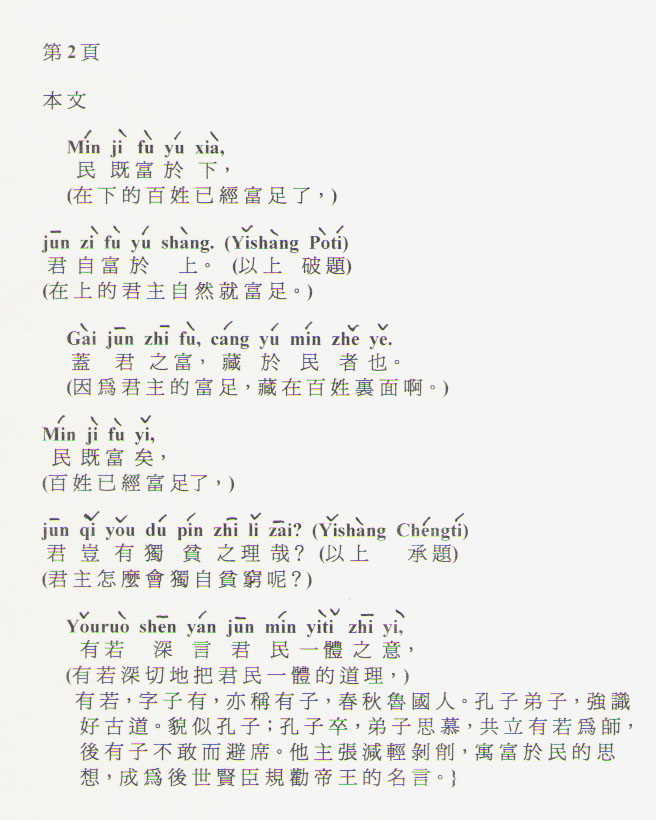 第 2 頁
本文
Mín jì fù yú xià,
民 既 富 於 下，
(在下的百姓已經富足了，)
jūn zì fù yú shàng. (Yǐshàng Pòtí)
君 自 富 於 上。 (以上 破題)
(在上的君主自然就富足。)
Gài jūn zhī fù, cáng yú mín zhě yě.
蓋 君 之 富， 藏 於 民 者 也。
(因爲君主的富足，藏在百姓裏面啊。)
Mín jì fù yǐ,
民 既 富 矣，
(百姓已經富足了，)
jūn qǐ yǒu dú pín zhī lǐ zāi? (Yǐshàng Chéngtí)
君 豈 有 獨 貧 之 理 哉? (以上 承題)
(君主怎麼會獨自貧窮呢?)
Yǒuruò shēn yán jūn mín yìtǐ zhī yì,
有若 深 言 君 民 一體 之 意，
(有若深切地把君民一體的道理，)
有若，字子有，亦稱有子，春秋魯國人。孔子弟子，強識
好古道。貌似孔子；孔子卒，弟子思慕，共立有若爲師，
後有子不敢而避席。他主張減輕剝削，寓富於民的思
想，成爲後世賢臣規勸帝王的名言。}